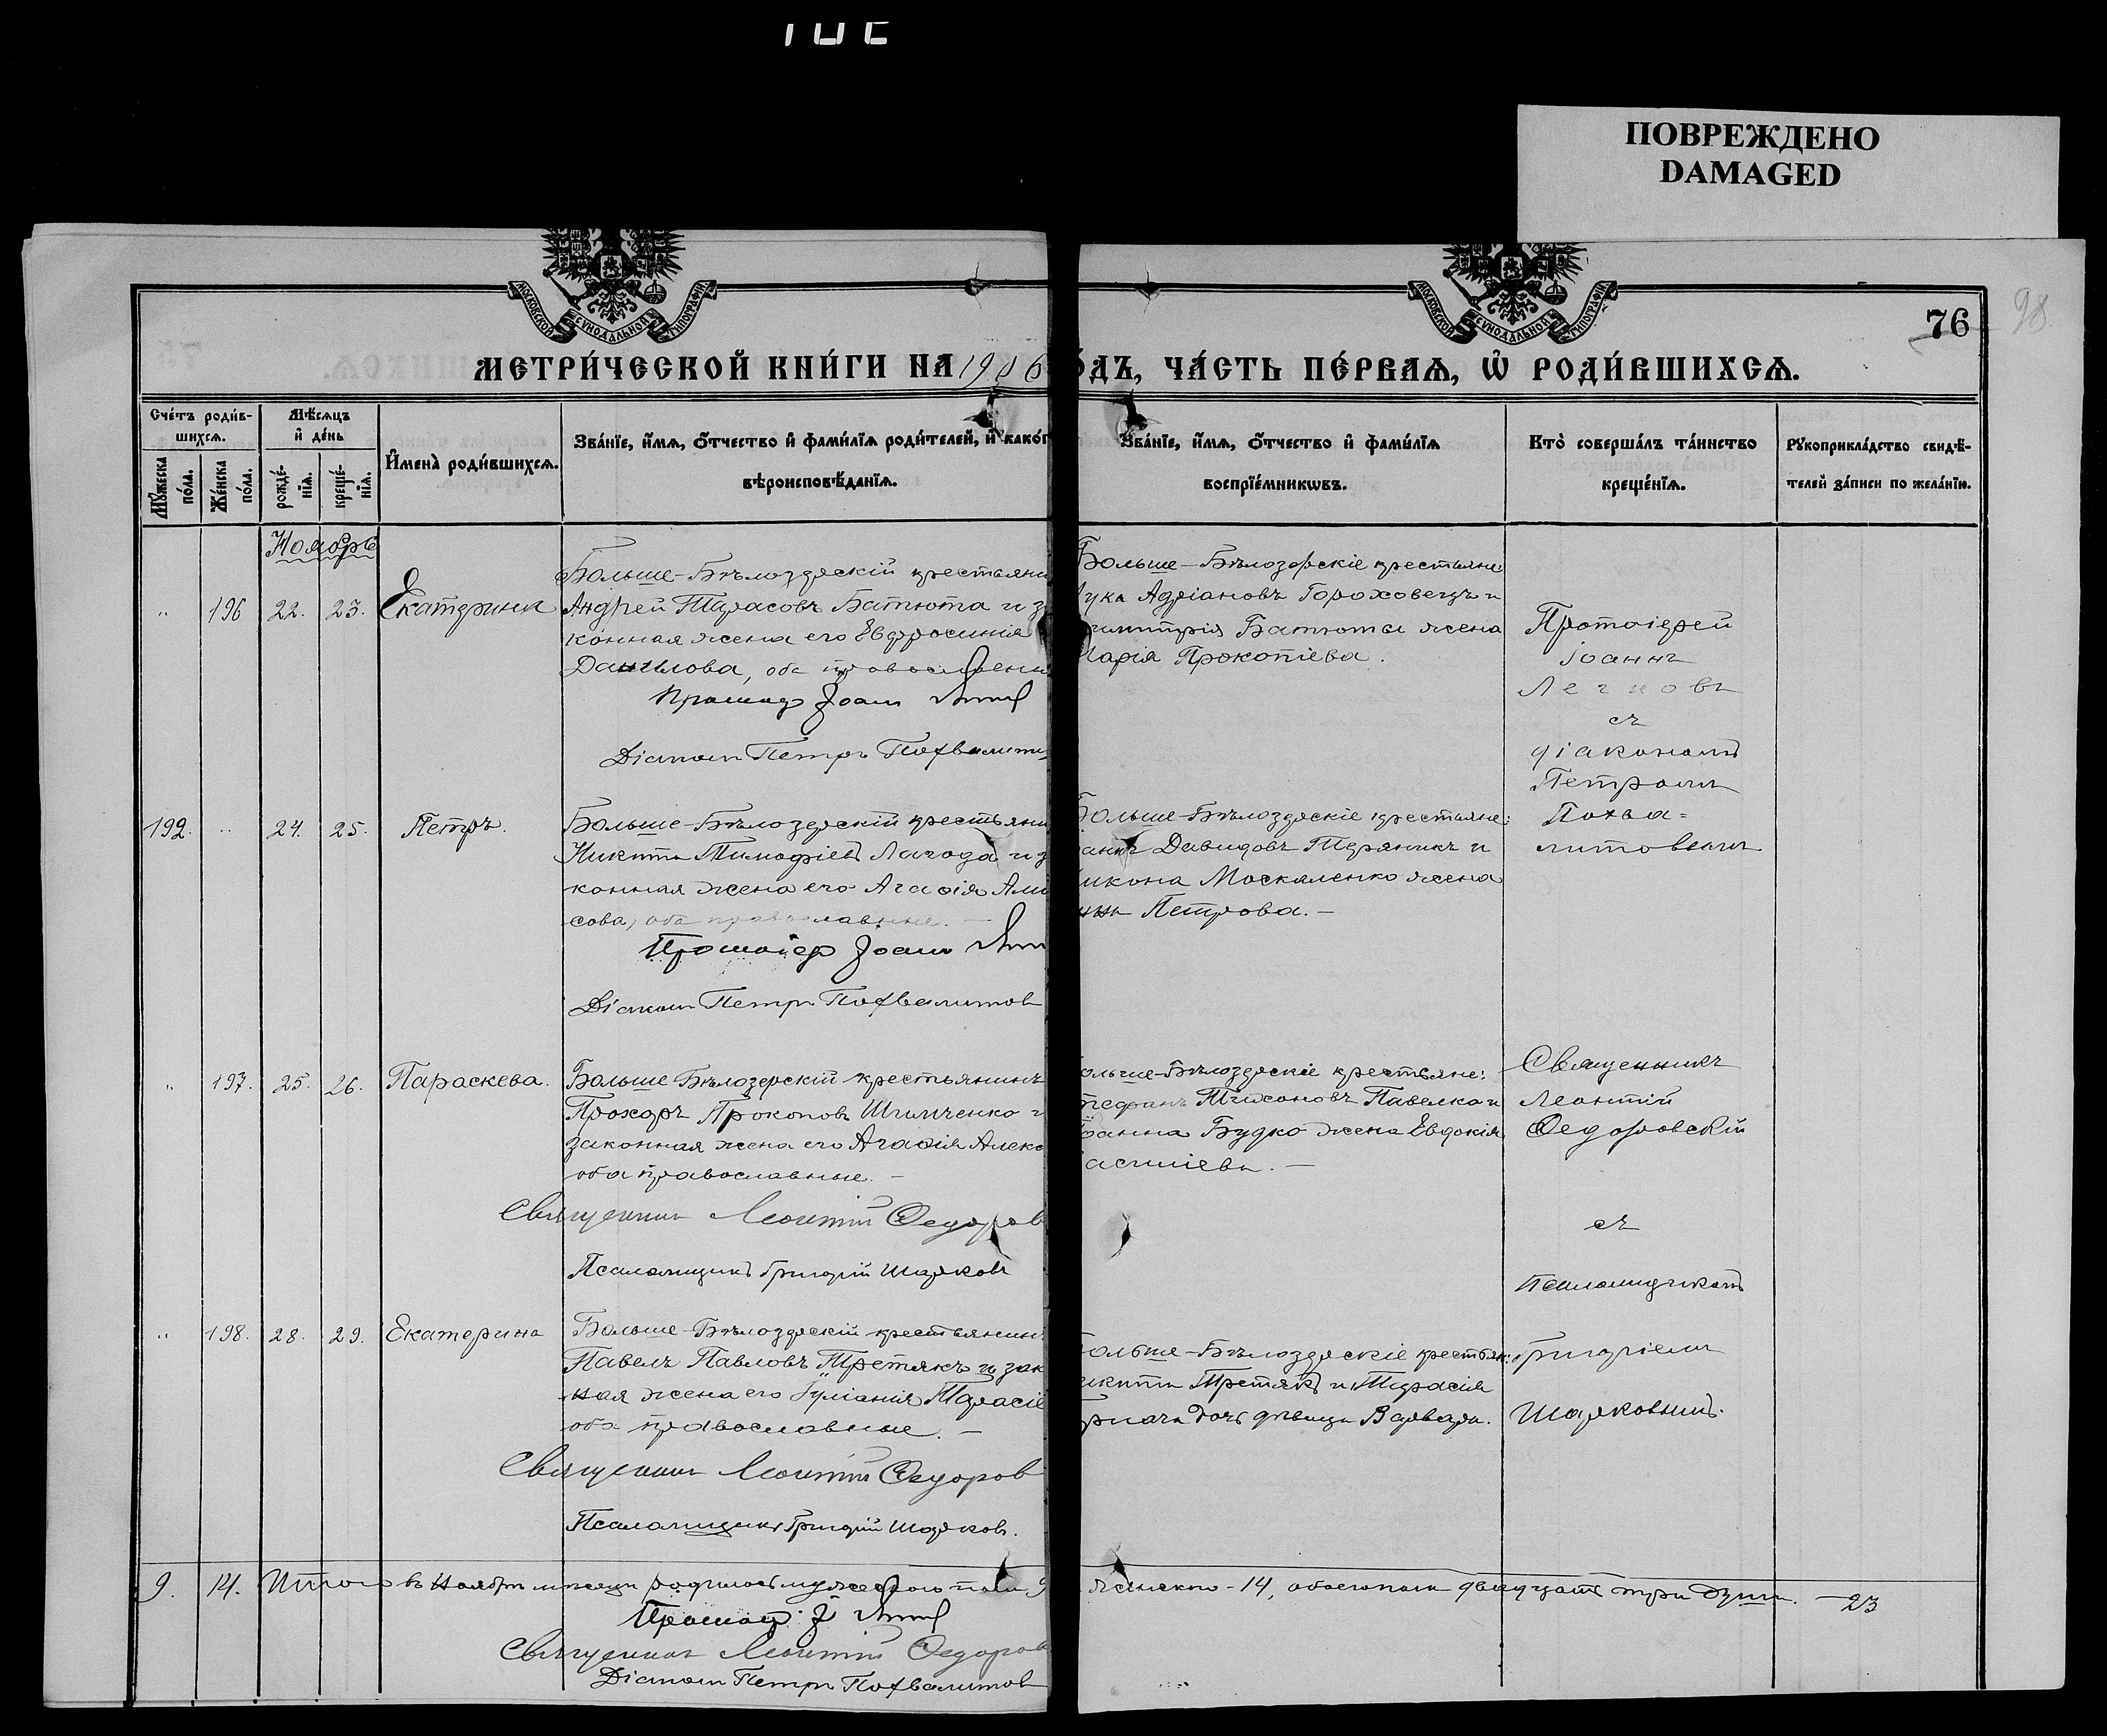 ПОВРЕЖДЕНО
DAMAGED
МОСКОВСКОЙ СѴНОДАЛЬНОЙ ТИПОГРАФІИ
МОСКОВСКОЙ СѴНОДАЛЬНОЙ ТИПОГРАФІИ
76
98.
МЕТРИ́ЧЕСКОЙ КНИ́ГИ НА 1906
ОДЪ, ЧА́СТЬ ПЕ́РВАѦ, Ѡ РОДИ́ВШИХСѦ.
Сче́тъ роди́в-
шихсѧ.
Мꙋ́жеска по́ла.
Же́нска по́ла.
Мѣ́сѧцъ
и де́нь
рожде́-
нїѧ.
креще́-
нїѧ.
Имена̀ роди́вшихсѧ.
Зва́нїе, и́мѧ, о́тчество и фами́лїѧ роди́телей, и како́г
вѣроисповѣ́данїѧ.
Зва́нїе, и́мѧ, о́тчество и фами́лїѧ
воспрїе́мникѡвъ.
Кто̀ соверша́лъ та́инство
креще́нїѧ.
Рꙋкоприкла́дство свидѣ́-
телей за́писи по жела́нїю.
Ноябрь
" 196 22. 23. Екатерина
Больше-Бѣлозерскій крестьяни
Андрей Тарасовъ Батюта и за
конная жена его Евфросинія
Данилова, оба православны
Діаконъ Петръ Похвалито
Больше-Бѣлозерскіе крестьяне:
Лука Адріановъ Гороховецъ и
имитрія Батюты жена
Марія Прокопіева.
Протоіерей
Іоаннъ
Легковъ
съ
діакономъ
Петромъ
Похва=
литовымъ
192. " 24. 25. Петръ.
Больше-Бѣлозерскій крестьяни
Никита Тимофіевъ Лагода и за
конная жена его Агаѳія Ами
сова, оба православные. —
Протоіер Іоан
Діаконъ Петръ Похвалитов
Больше-Бѣлозерскіе крестьяне:
Давидовъ Теряникъ и
икона Москаленко жена
нна Петрова. —
" 197. 25. 26. Параскева.
Больше-Бѣлозерскій крестьянинъ
Прохоръ Прокоповъ Шимченко и
законная жена его Агаѳія Алекс
оба православные. —
Священникъ Леонтій Ѳедоров
Псаломщикъ Григорій Шарковъ
ольше-Бѣлозерскіе крестьяне:
тефанъ Тихоновъ Павелко и
оанна Будко жена Евдокія
асиліева. —
Священникъ
Леонтій
Ѳедоровскій
съ
псаломщикомъ
Григоріемъ
Шарковымъ.
" 198. 28. 29. Екатерина
Больше-Бѣлозерскій крестьянинъ
Павелъ Павловъ Третякъ и зак
ная жена его Іуліанія Тарасіе
оба православные. —
Священникъ Леонтій Ѳедоров
Псаломщикъ Григорій Шарковъ.
ольше-Бѣлозерскіе крестьян:
икита Третякъ и Тарасія
дочь дѣвица Варвара.
9. 14. Итого въ Ноябрѣ мѣсяцѣ родилось мужескаго пола 9
женскаго - 14, обоего пола двадцать три души. — 23
Священникъ Леонтій Ѳедоров
Діаконъ Петръ Похвалитов